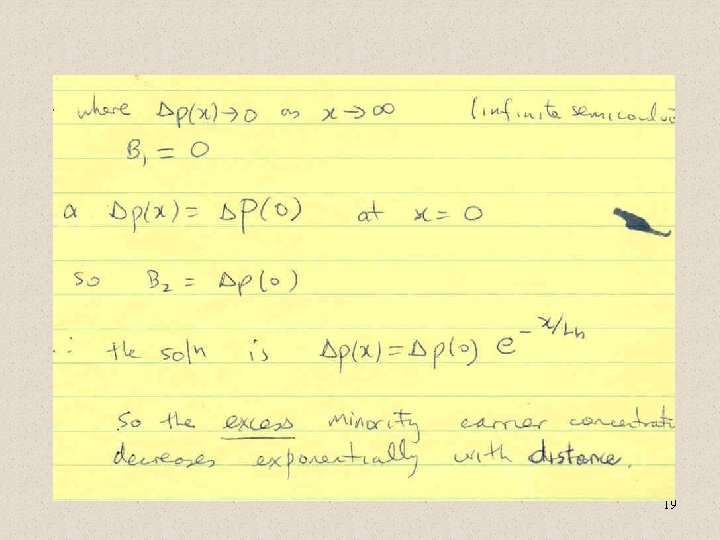 where Δp(x)→0 as x→∞ (infinite semicondu
B₁ = 0
& Δp(x) = ΔP(0) at x = 0
so B₂ = Δp(0)
∴ the soln is Δp(x) = Δp(0) e^(-x/Lh)
So the excess minority carrier concentrati
decreases exponentially with distance.
19